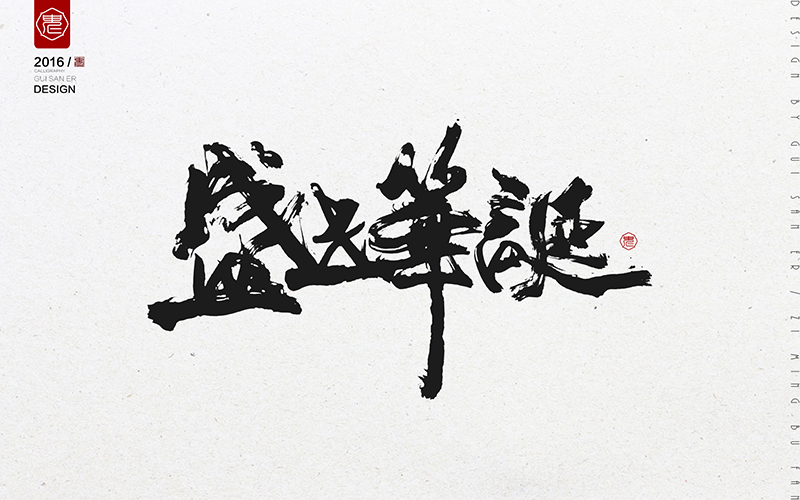 2016 /
CALLIGRAPHY
GUI SAN ER
DESIGN
盛世華誕
DESIGN BY GUI SAN ER / ZI MING.BU FAN